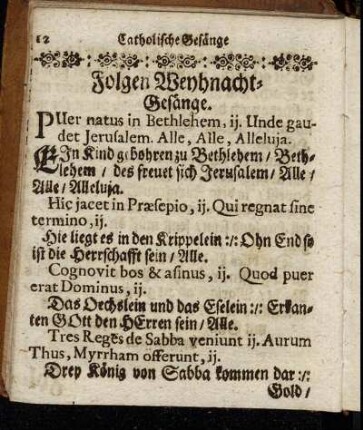 12 Catholische Gesänge
Folgen Weyhnacht-
Gesänge.
PUer natus in Bethlehem, ij. Unde gau-
det Jerusalem. Alle, Alle, Alleluja.
EIn Kind gebohren zu Bethlehem / Beth-
lehem / des freuet sich Jerusalem / Alle /
Alle / Alleluja.
Hic jacet in Præsepio, ij. Qui regnat sine
termino, ij.
Hie liegt es in den Krippelein :/: Ohn End so
ist die Herrschafft sein / Alle.
Cognovit bos & asinus, ij. Quod puer
erat Dominus, ij.
Das Oechslein und das Eselein :/: Erkan-
ten GOtt den HErren sein / Alle.
Tres Reges de Sabba veniunt ij. Aurum
Thus, Myrrham offerunt, ij.
Drey König von Sabba kommen dar :/:
Gold /